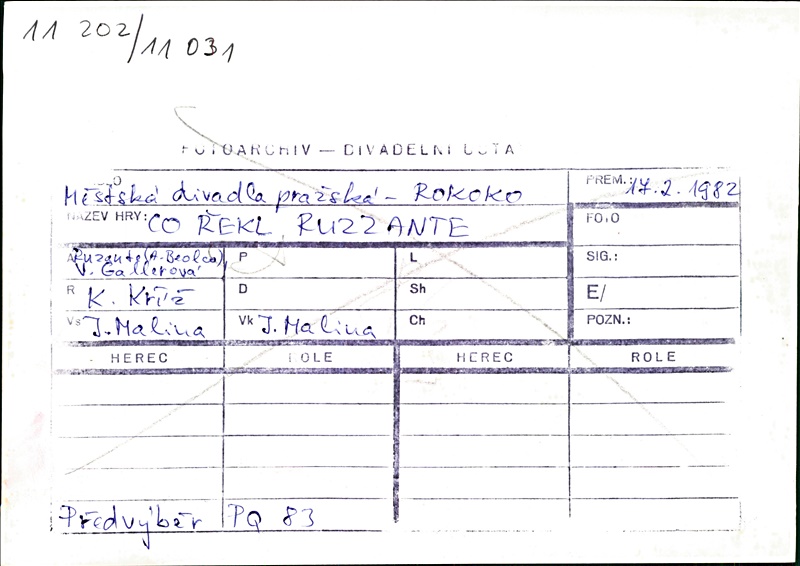 11 202/11 031
FOTOARCHIV — DIVADELNÍ ÚSTAV
Městská divadla pražská - ROKOKO
PREM.: 17.2.1982
NÁZEV HRY: CO ŘEKL RUZZANTE
FOTO
A Ruzante (A. Beolco), V. Gallerová
P
L
SIG.:
R K. Kříž
D
Sh
E/
Vs J. Malina
Vk J. Malina
Ch
POZN.:
HEREC ROLE HEREC ROLE
Předvýběr PQ 83